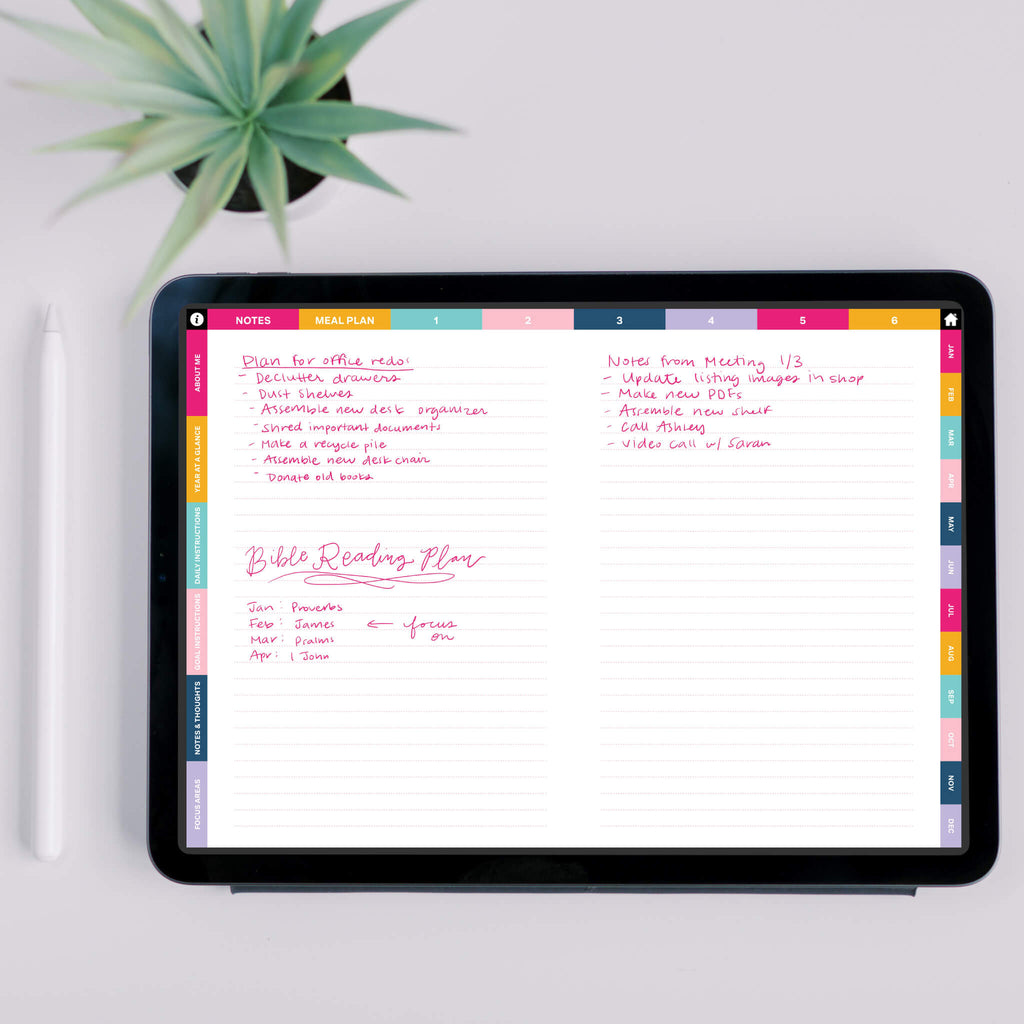 i
NOTES
MEAL PLAN
1
2
3
4
5
6
ABOUT ME
YEAR AT A GLANCE
DAILY INSTRUCTIONS
GOAL INSTRUCTIONS
NOTES & THOUGHTS
FOCUS AREAS
Plan for office redo:
- Declutter drawers
- Dust shelves
- Assemble new desk organizer
- Shred important documents
- Make a recycle pile
- Assemble new desk chair
- Donate old books
Bible Reading Plan
Jan: Proverbs
Feb: James ← focus
on
Mar: Psalms
Apr: 1 John
Notes from Meeting 1/3
- Update listing images in shop
- Make new PDFs
- Assemble new shelf
- Call Ashley
- Video call w/ Sarah
JAN
FEB
MAR
APR
MAY
JUN
JUL
AUG
SEP
OCT
NOV
DEC